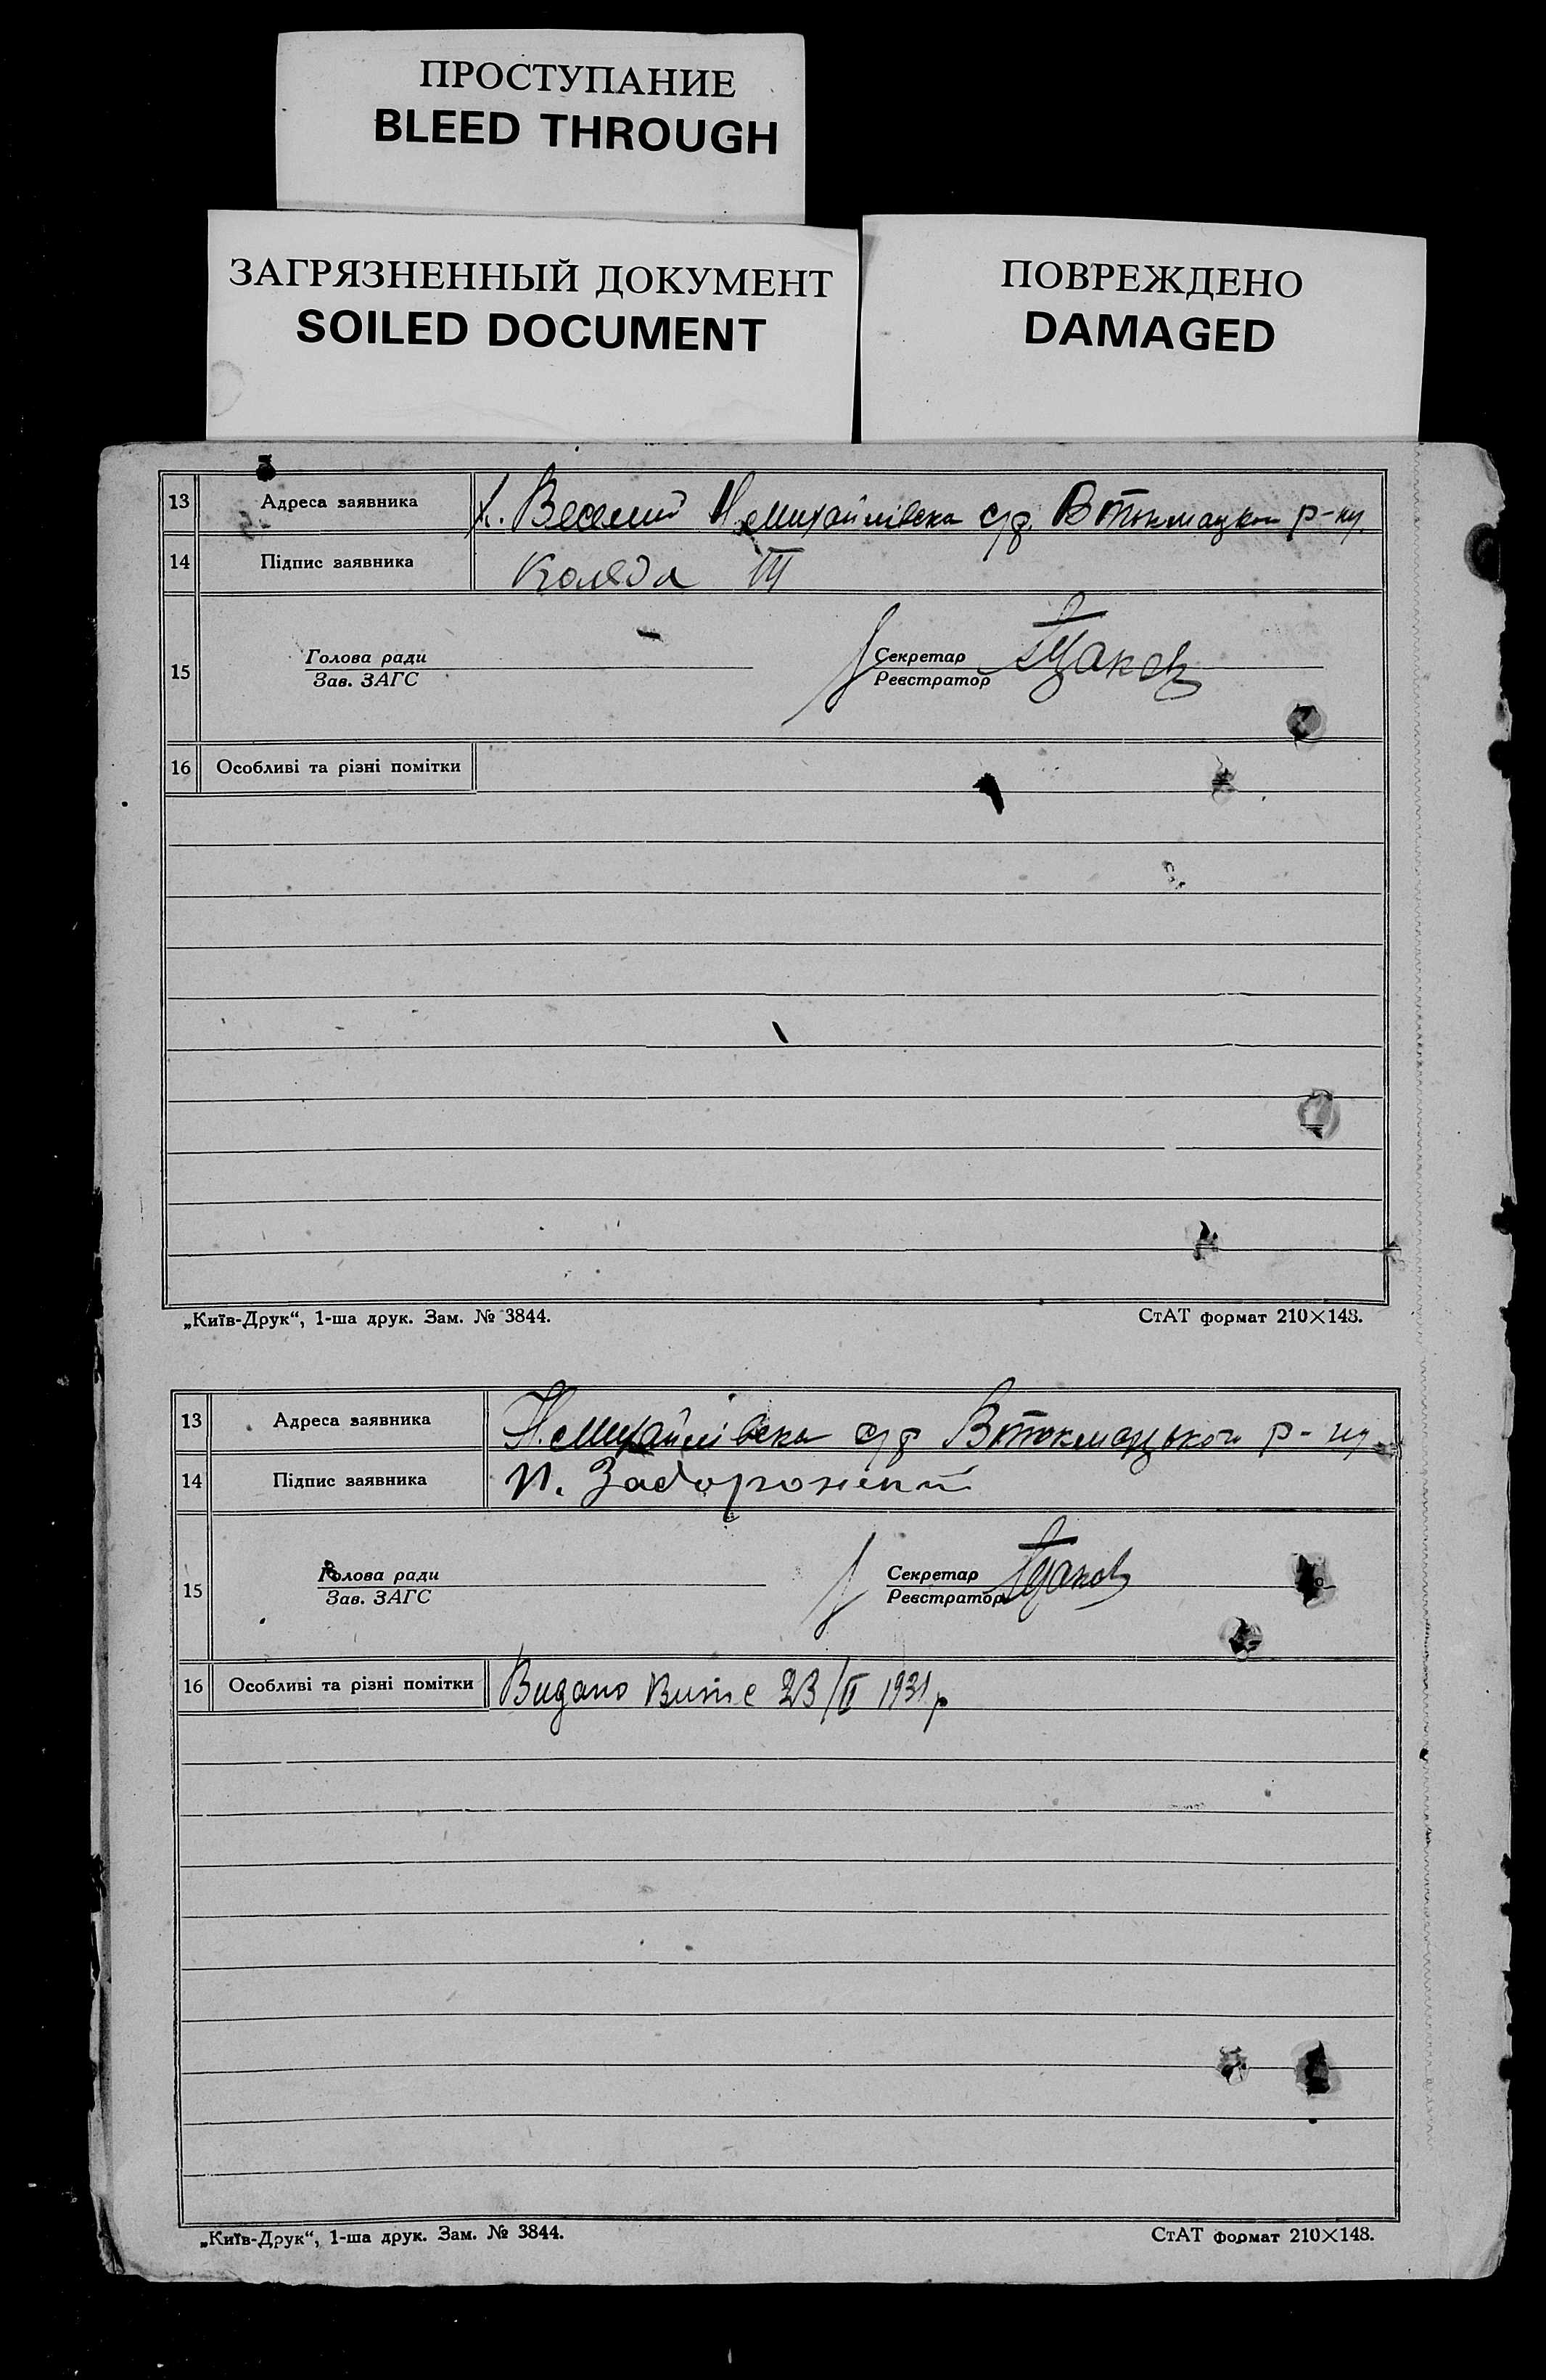 ПРОСТУПАНИЕ
BLEED THROUGH
ЗАГРЯЗНЕННЫЙ ДОКУМЕНТ
SOILED DOCUMENT
ПОВРЕЖДЕНО
DAMAGED
13 Адреса заявника х. Веселий Н.Михайлівська с/р. Втокмацкои р-ну.
14 Підпис заявника Коляда
15 Голова ради Секретар
Зав. ЗАГС Реєстратор
16 Особливі та різні помітки
„Київ-Друк“, 1-ша друк. Зам. № 3844. СтАТ формат 210×148.
13 Адреса заявника Н.Михайлівська с/р Втокмацького р-ну
14 Підпис заявника П. Задорожний
15 Голова ради Секретар
Зав. ЗАГС Реєстратор
16 Особливі та різні помітки Видано Витяг 23/II 1931 р
„Київ-Друк“, 1-ша друк. Зам. № 3844. СтАТ формат 210×148.